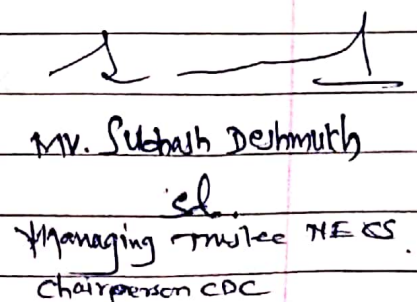 Mr. Subhash Deshmukh
sd.
Managing Trustee NECS.
Chairperson CDC